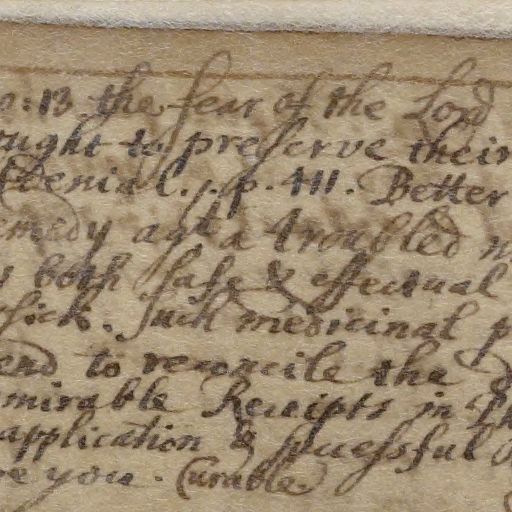 o: 13. the fear of the Lord
ought to preserve their
denial. p. 411. Better
emedy agt a troubled
both safe & effectual
sick. Such medicinal
end to reconcile the
mirable Receipts in
application is successful
re you. Curable.